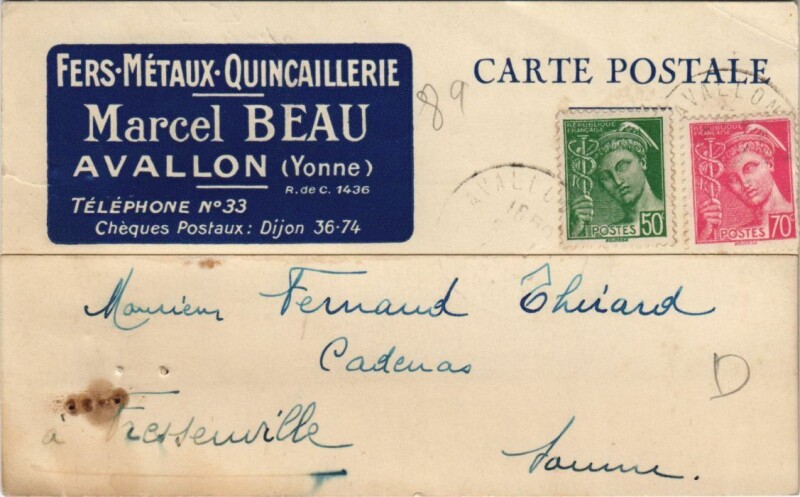 FERS·MÉTAUX·QUINCAILLERIE
Marcel BEAU
AVALLON (Yonne)
R. de C. 1436
TÉLÉPHONE N° 33
Chèques Postaux: Dijon 36-74
CARTE POSTALE
89
AVALLON
AVALLON
RÉPUBLIQUE FRANÇAISE
POSTES 50c
RÉPUBLIQUE FRANÇAISE
POSTES 70c
Monsieur Fernand Thérard
Cadenas
D
à Fressenville
Somme.